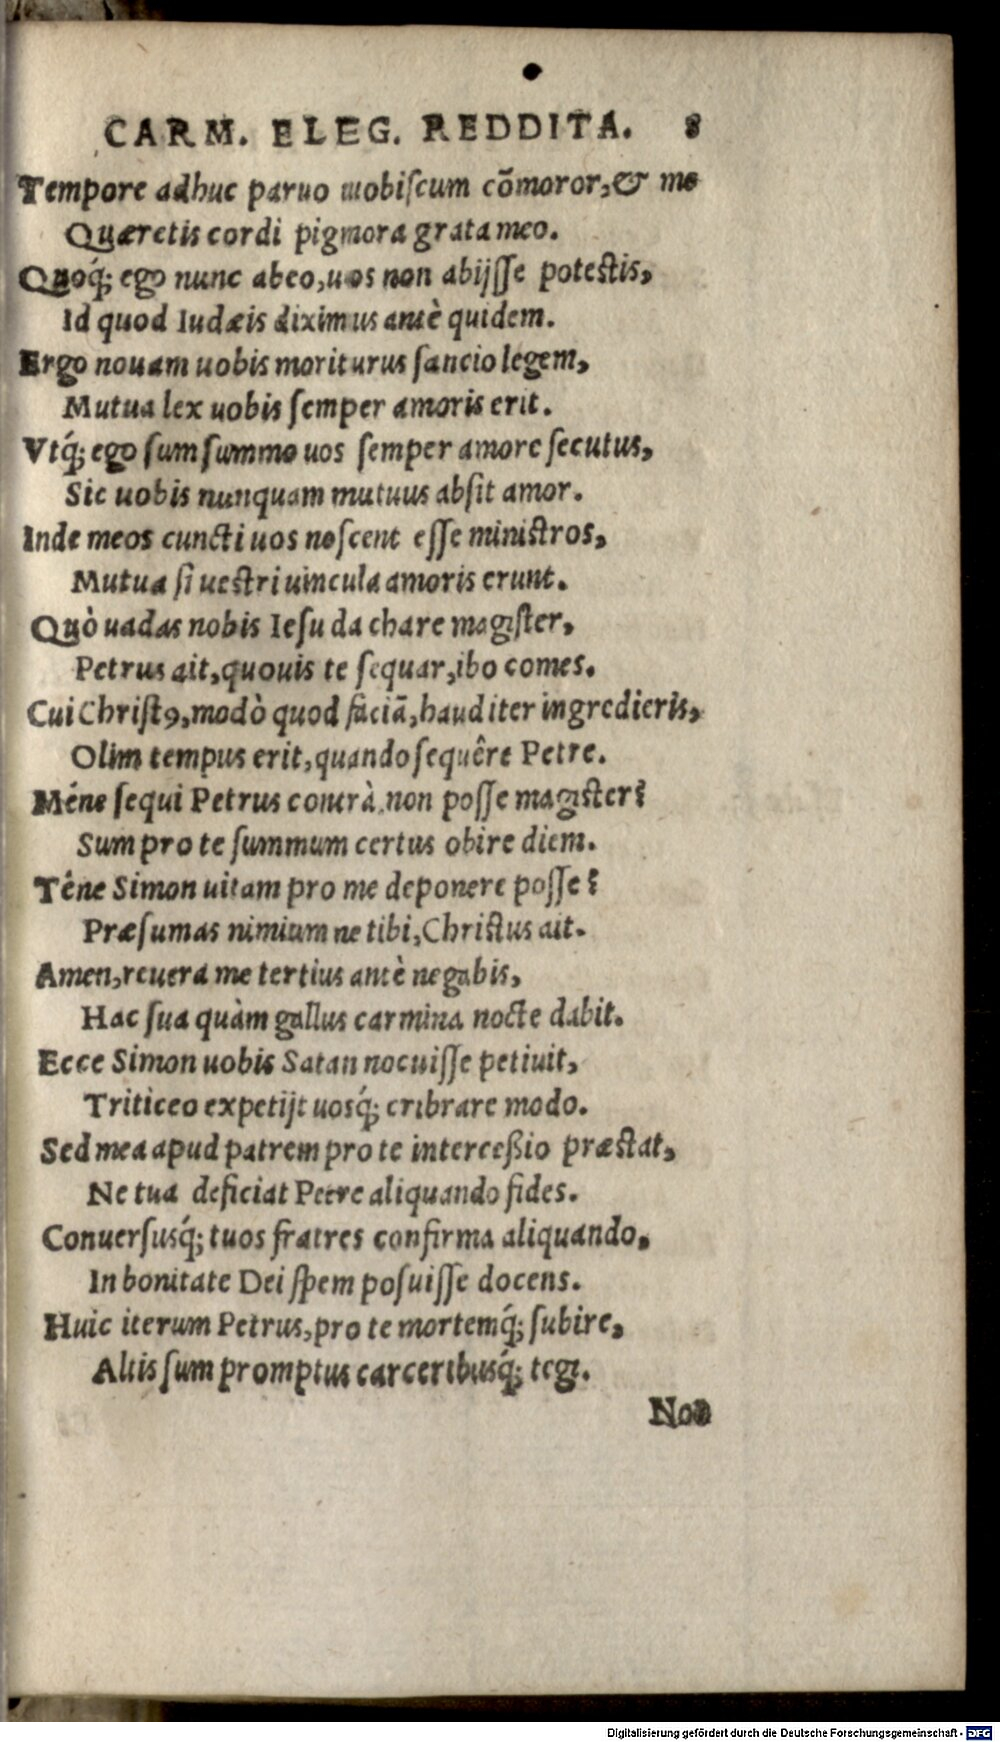 CARM. ELEG. REDDITA. 8
Tempore adhuc paruo uobiscum cōmoror, & me
Quæretis cordi pigmora grata meo.
Quoq́; ego nunc abeo, uos non abijsse potestis,
Id quod Iudæis diximus antè quidem.
Ergo nouam uobis moriturus sancio legem,
Mutua lex uobis semper amoris erit.
Vtq́; ego sum summo uos semper amore secutus,
Sic uobis nunquam mutuus absit amor.
Inde meos cuncti uos noscent esse ministros,
Mutua si uestri uincula amoris erunt.
Quò uadas nobis Iesu da chare magister,
Petrus ait, quouis te sequar, ibo comes.
Cui Christꝰ, modò quod faciā, haud iter ingredieris,
Olim tempus erit, quando sequêre Petre.
Méne sequi Petrus contrà, non posse magister?
Sum pro te summum certus obire diem.
Téne Simon uitam pro me deponere posse?
Præsumas nimium ne tibi, Christus ait.
Amen, reuera me tertius antè negabis,
Hac sua quàm gallus carmina nocte dabit.
Ecce Simon uobis Satan nocuisse petiuit,
Triticeo expetijt uosq́; cribrare modo.
Sed mea apud patrem pro te intercessio præstat,
Ne tua deficiat Petre aliquando fides.
Conuersusq́; tuos fratres confirma aliquando,
In bonitate Dei spem posuisse docens.
Huic iterum Petrus, pro te mortemq́; subire,
Altis sum promptus carceribusq́; tegi.
Nos
Digitalisierung gefördert durch die Deutsche Forschungsgemeinschaft - DFG